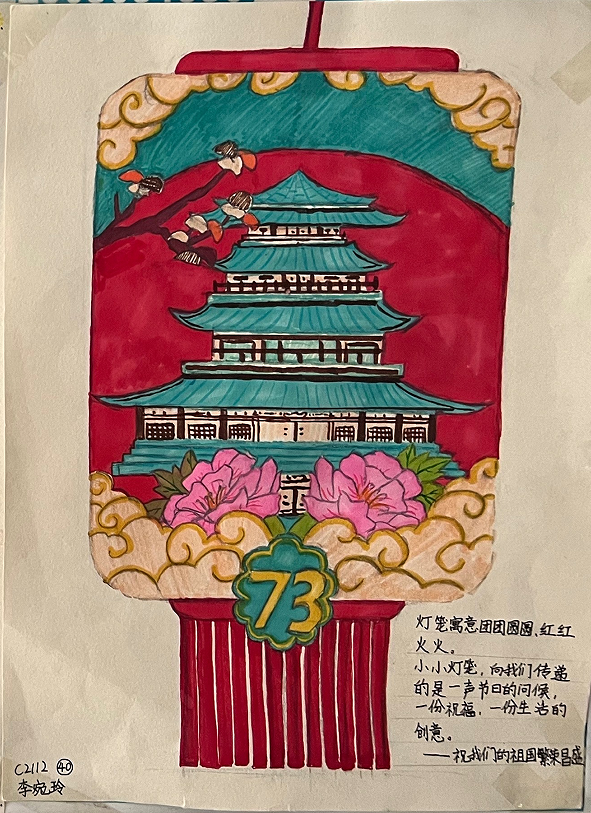 73
灯笼寓意团团圆圆、红红
火火。
小小灯笼，向我们传递
的是一声节日的问候，
一份祝福，一份生活的
创意。
——祝我们的祖国繁荣昌盛
C2112 ㊵
李婉玲